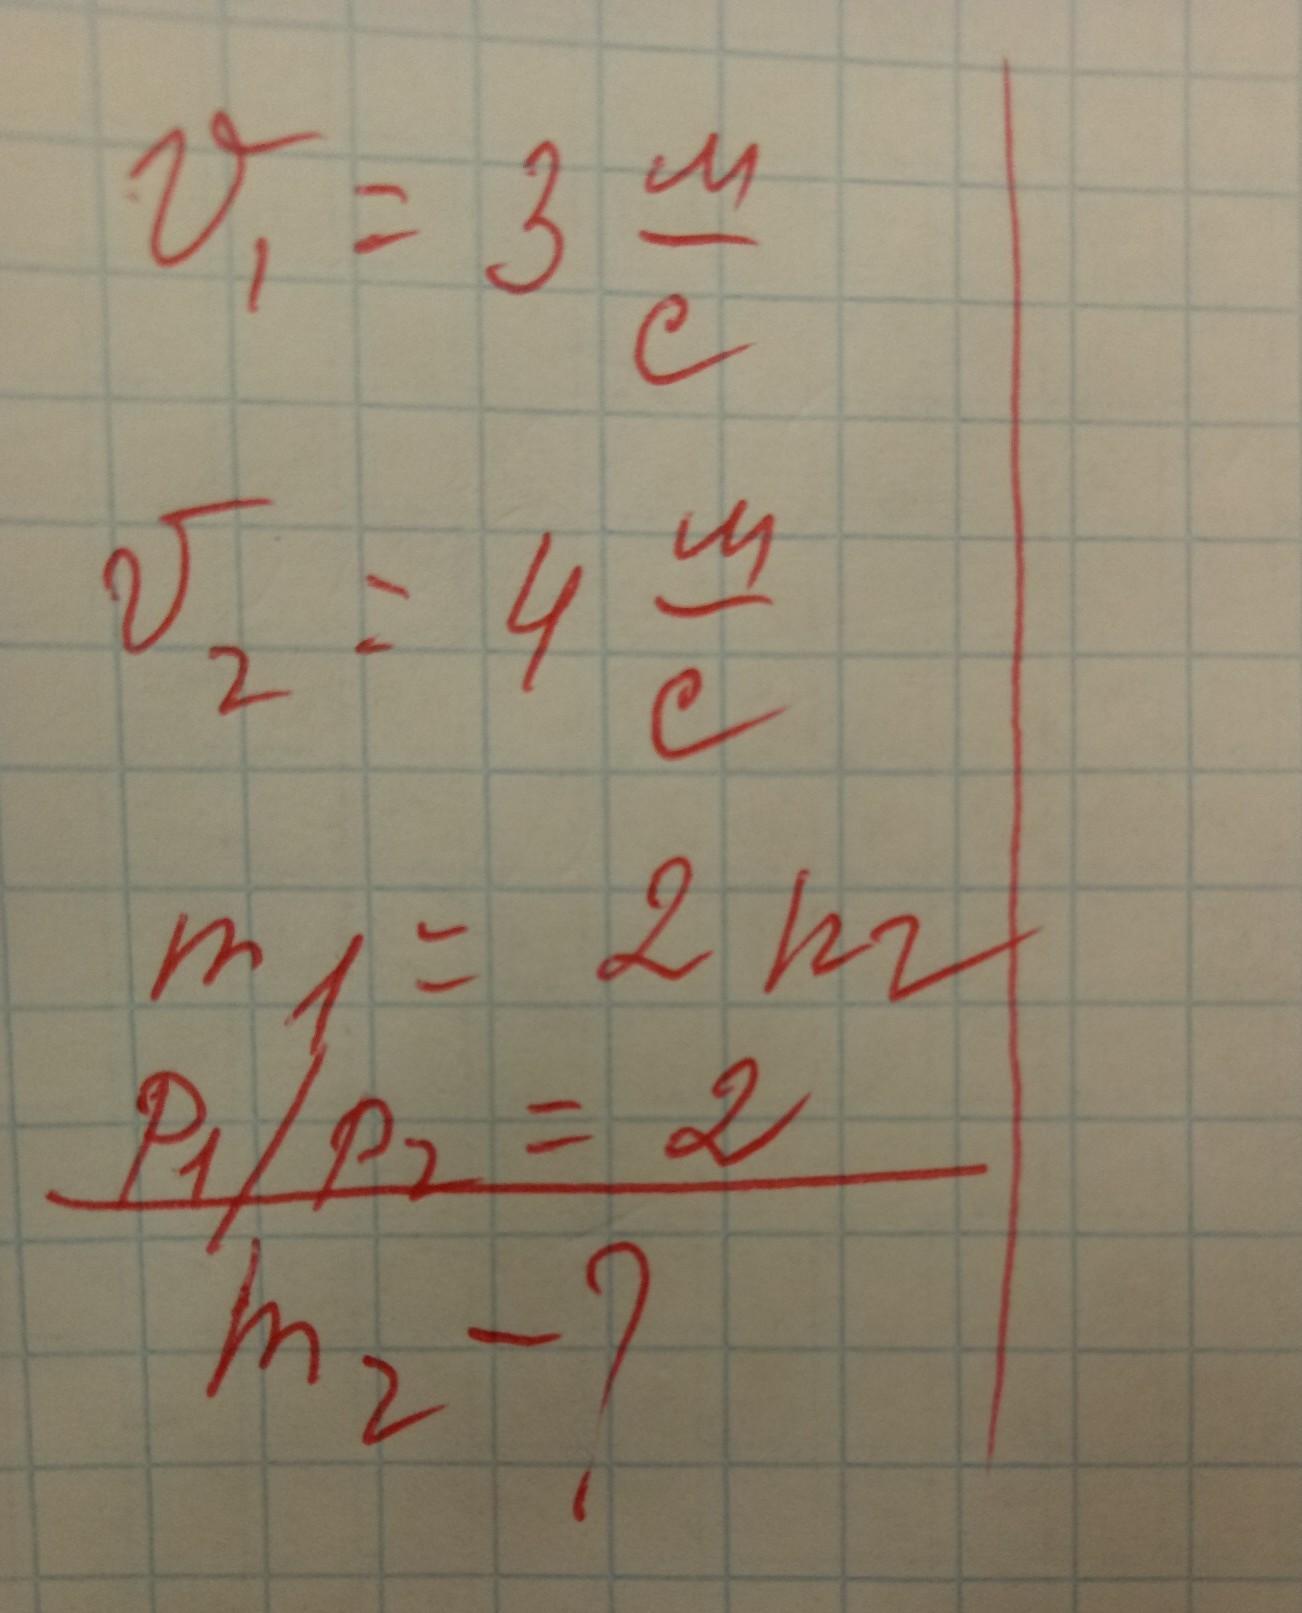 v₁ = 3 м/с
v₂ = 4 м/с
m₁ = 2 кг
p₁/p₂ = 2
m₂ - ?